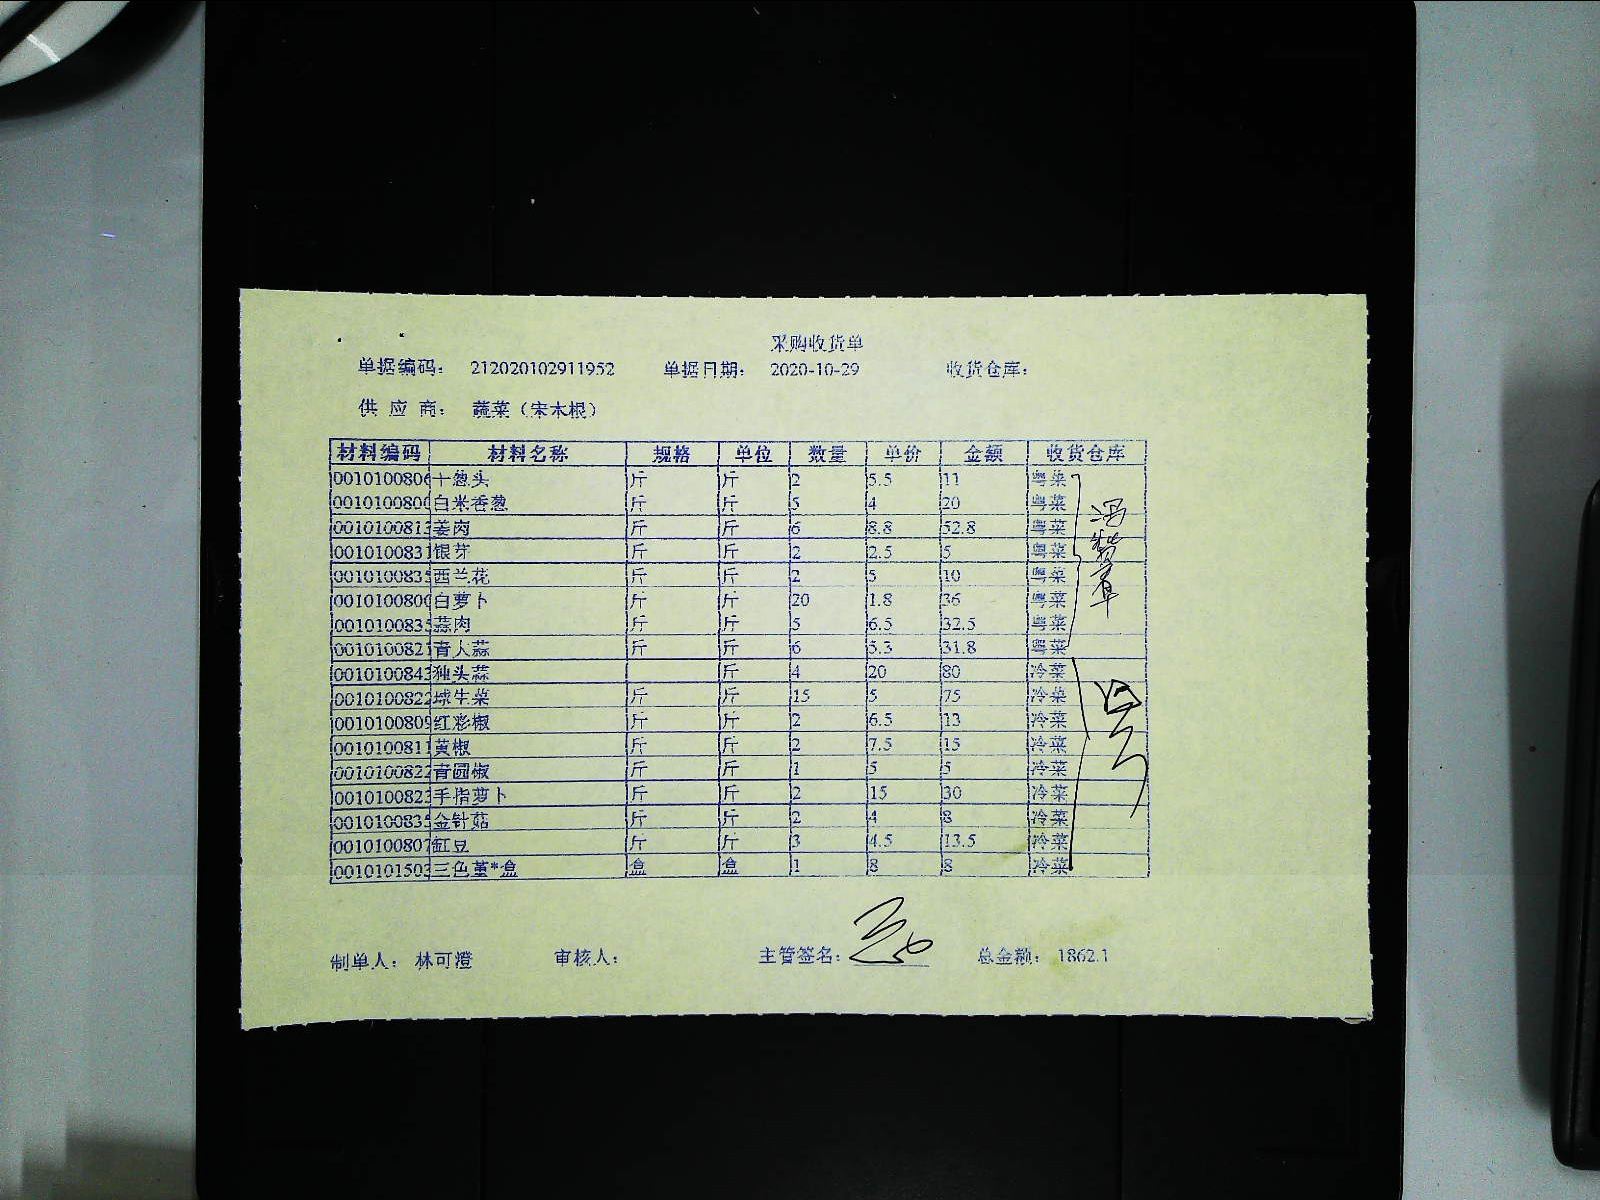 采购收货单
单据编码： 212020102911952 单据日期： 2020-10-29 收货仓库：
供 应 商： 蔬菜（宋木根）
材料编码 材料名称 规格 单位 数量 单价 金额 收货仓库
0010100806 干葱头 斤 斤 2 5.5 11 粤菜
001010080 白米香葱 斤 斤 5 4 20 粤菜
001010081 姜肉 斤 斤 6 8.8 52.8 粤菜
0010100831 银芽 斤 斤 2 2.5 5 粤菜
001010083 西兰花 斤 斤 2 5 10 粤菜
001010080 白萝卜 斤 斤 20 1.8 36 粤菜
001010083 蒜肉 斤 斤 5 6.5 32.5 粤菜
001010082 青大蒜 斤 斤 6 5.3 31.8 粤菜
001010084 独头蒜 斤 4 20 80 冷菜
001010082 球生菜 斤 斤 15 5 75 冷菜
0010100809 红彩椒 斤 斤 2 6.5 13 冷菜
0010100811 黄椒 斤 斤 2 7.5 15 冷菜
001010082 青圆椒 斤 斤 1 5 5 冷菜
001010082 手指萝卜 斤 斤 2 15 30 冷菜
001010083 金针菇 斤 斤 2 4 8 冷菜
0010100807 缸豆 斤 斤 3 4.5 13.5 冷菜
001010150 三色堇*盒 盒 盒 1 8 8 冷菜
制单人： 林可澄 审核人： 主管签名： 总金额： 1862.1